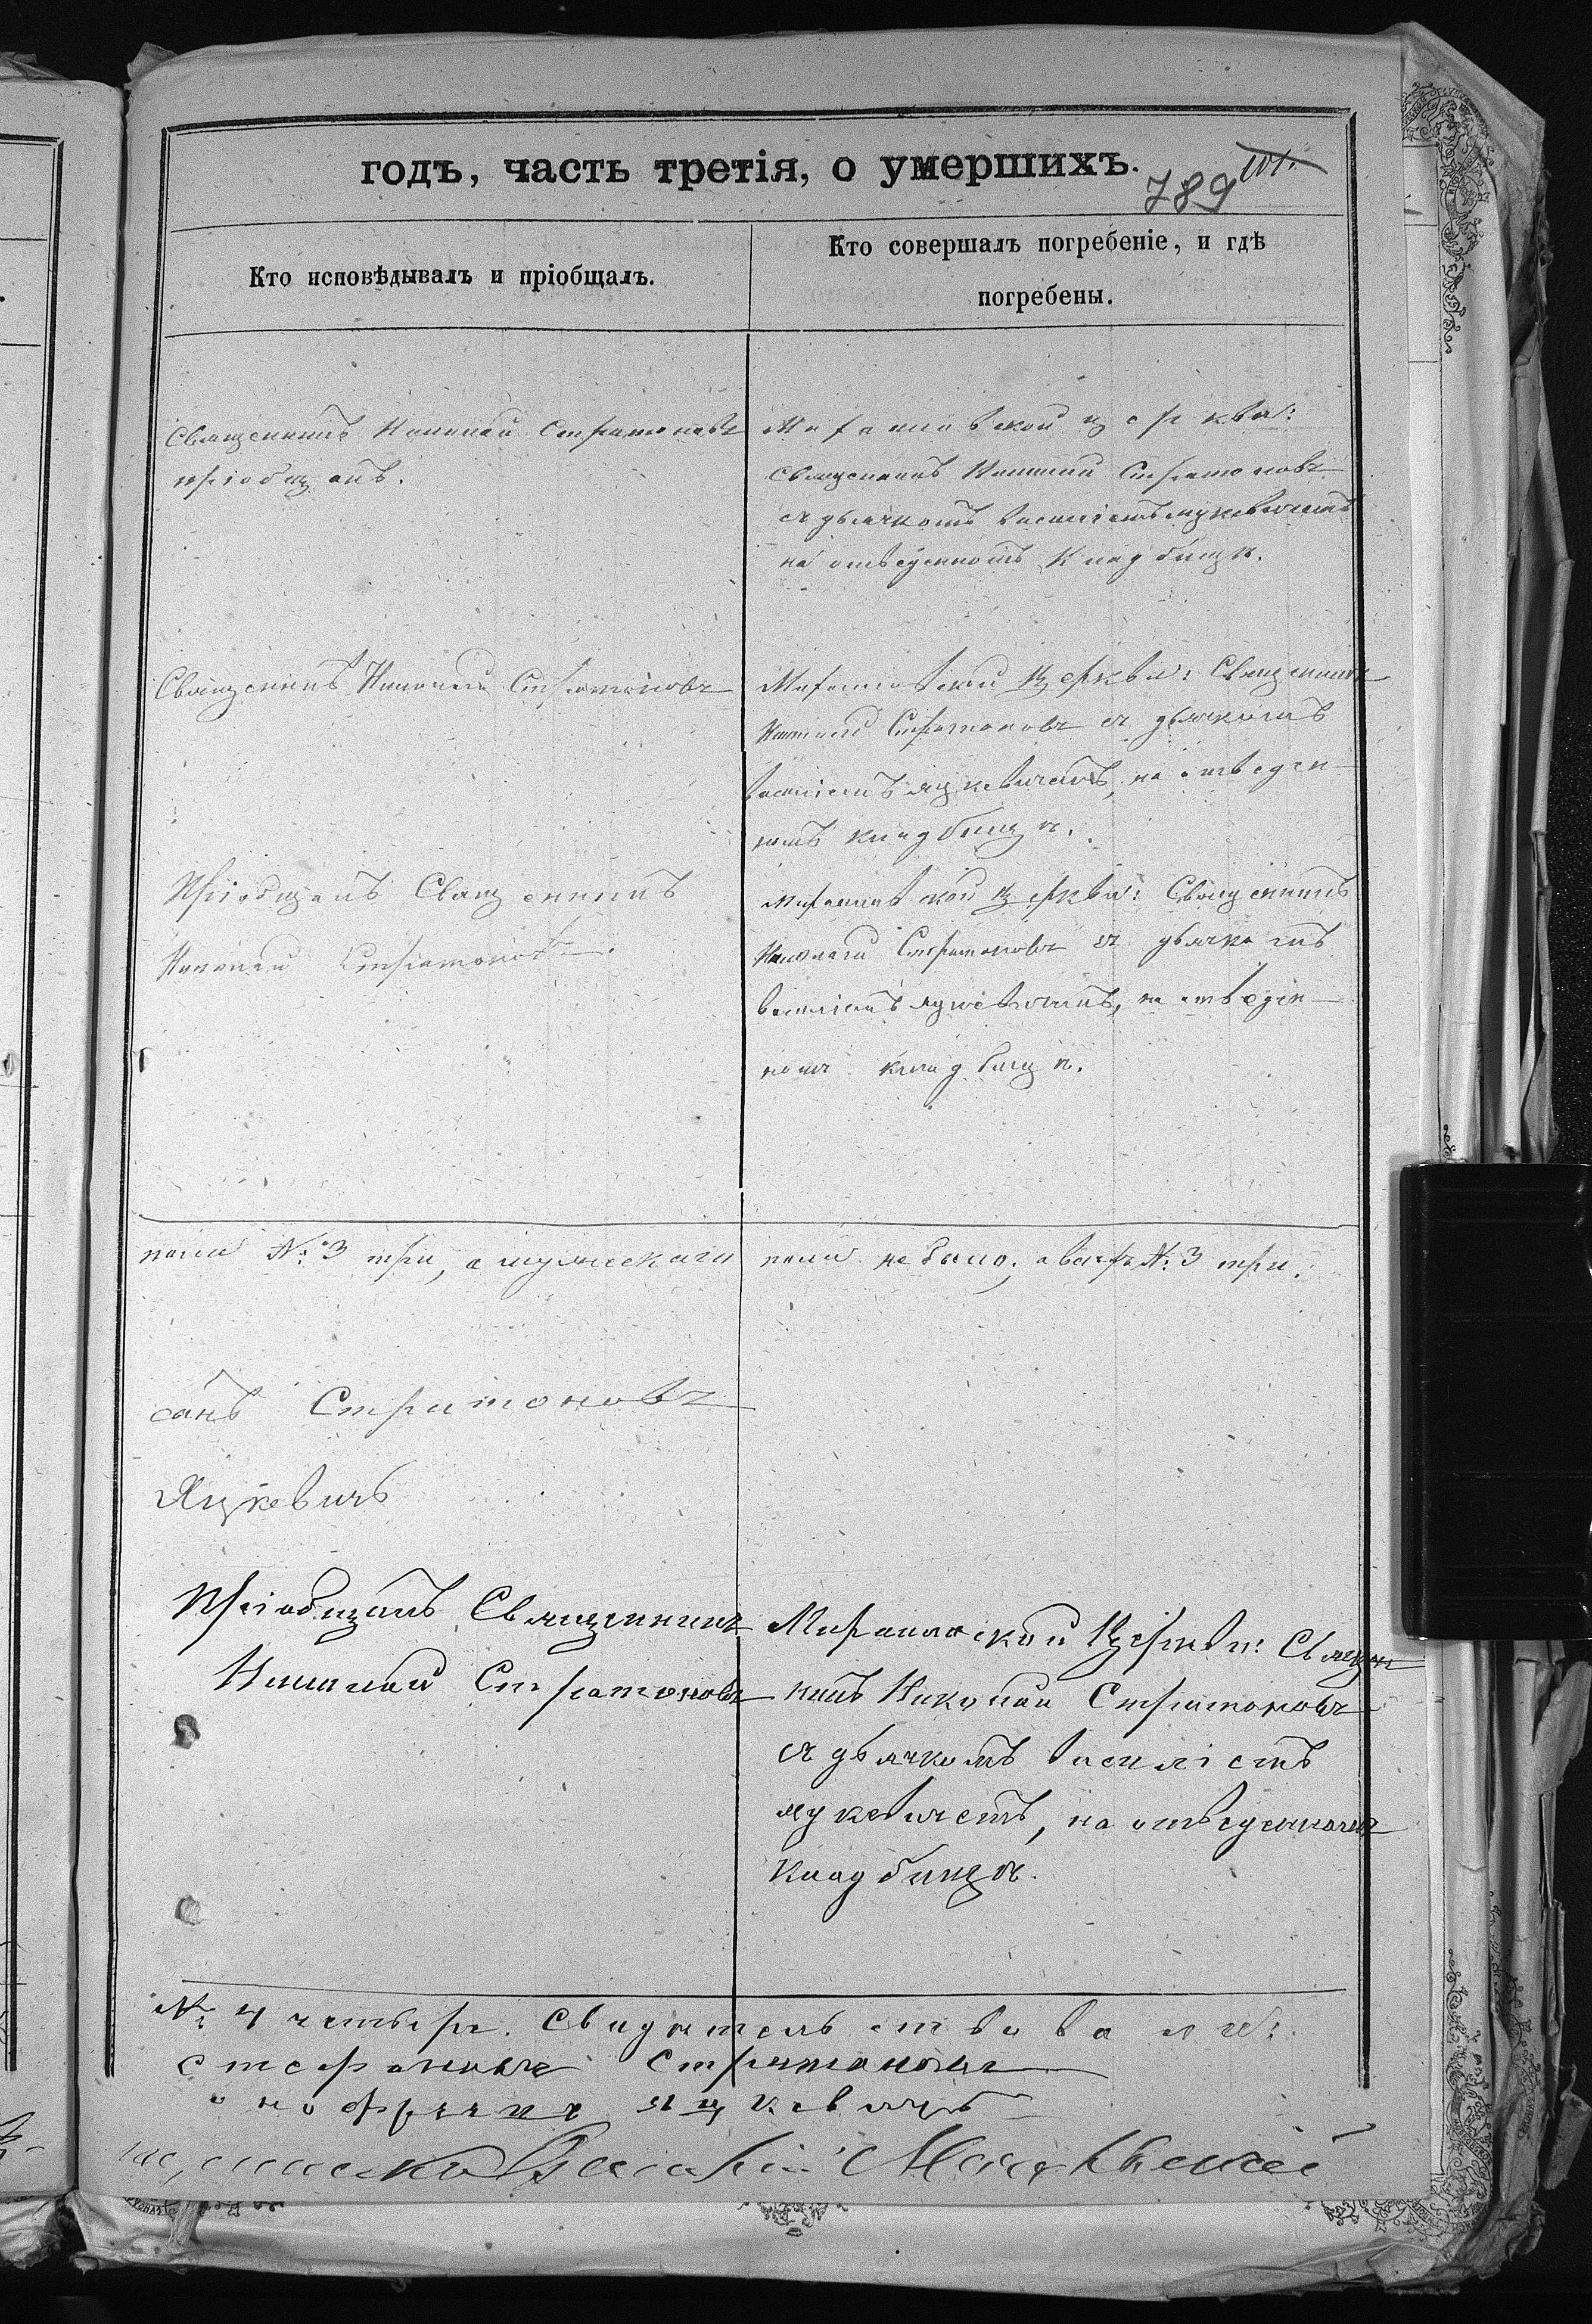 годъ, часть третія, о умершихъ.
789
101.
Кто исповѣдывалъ и пріобщалъ.
Кто совершалъ погребеніе, и гдѣ
погребены.
Священникъ Николай Стратоновъ
пріобщалъ.
церкви:
священникъ Николай Стратоновъ
съ дьячкомъ Василіемъ Яцкевичемъ
на отведенномъ кладбищѣ.
Священникъ Николай Стратоновъ
церкви: Священникъ
Николай Стратоновъ съ дьячкомъ
Василіемъ Яцкевичемъ, на отведен-
номъ кладбищѣ.
Пріобщалъ Священникъ
Николай Стратоновъ.
церкви: Священникъ
Николай Стратоновъ съ дьячкомъ
Василіемъ Яцкевичемъ, на отведен-
номъ кладбищѣ.
пола №: 3 три, а мужескаго пола не было; а всехъ №: 3 три.
Стратоновъ
Яцкевичъ
Пріобщалъ Священникъ
Николай Стратоновъ
Церкви: Священ-
никъ Николай Стратоновъ
съ дьячкомъ Василіемъ
Яцкевичемъ, на отведенномъ
кладбищѣ.
№ 4 четыре. Свидѣтельствовали:
Стратоновъ
Яцкевичъ